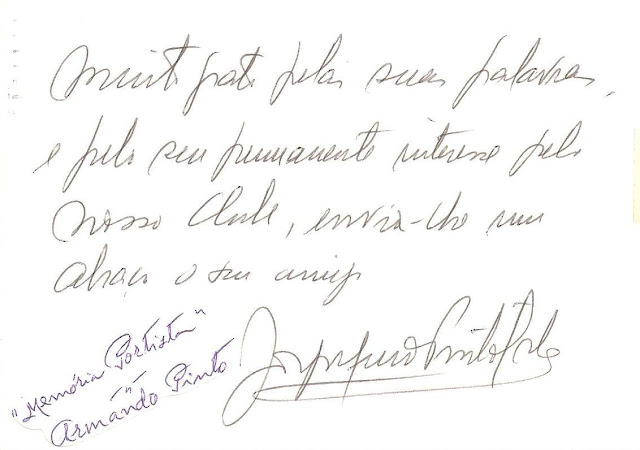 Muito grato pelas suas palavras,
e pelo seu permanente interesse pelo
nosso Clube, envia-lhe um
abraço o seu amigo
Jorge Nuno Pinto Costa
"Memória Portista"
Armando Pinto